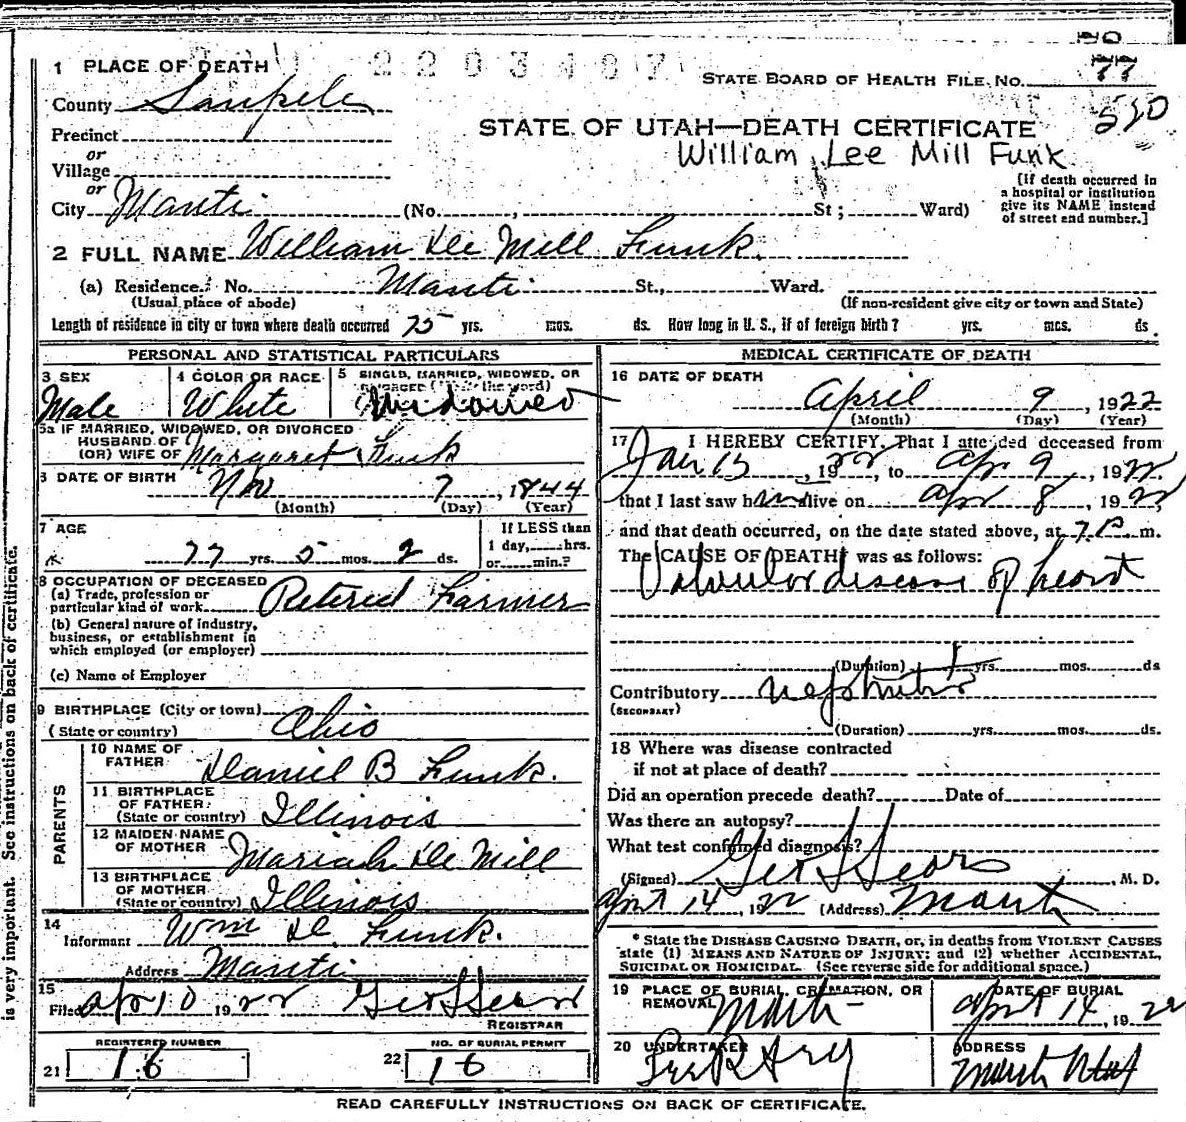 1 PLACE OF DEATH 2203487
STATE BOARD OF HEALTH FILE NO. 77
County Sanpete
Precinct
STATE OF UTAH—DEATH CERTIFICATE 530
or
Village
William Lee Mill Funk
or
City Manti (No. , St; Ward)
[If death occurred in a hospital or institution give its NAME instead of street and number.]
2 FULL NAME William De Mill Funk.
(a) Residence. No. Manti St., Ward.
(Usual place of abode) (If non-resident give city or town and State)
Length of residence in city or town where death occurred 75 yrs. mos. ds. How long in U. S., if of foreign birth? yrs. mos. ds.
PERSONAL AND STATISTICAL PARTICULARS
3 SEX Male
4 COLOR OR RACE White
5 SINGLE, MARRIED, WIDOWED, OR DIVORCED (Write the word) Widowed
5a IF MARRIED, WIDOWED, OR DIVORCED
HUSBAND OF
(OR) WIFE OF Margaret Funk
6 DATE OF BIRTH Nov 7, 1844
(Month) (Day) (Year)
7 AGE 77 yrs. 5 mos. 2 ds.
If LESS than
1 day, hrs.
or min.?
8 OCCUPATION OF DECEASED
(a) Trade, profession or
particular kind of work Retired Farmer
(b) General nature of industry,
business, or establishment in
which employed (or employer)
(c) Name of Employer
9 BIRTHPLACE (City or town)
(State or country) Ohio
PARENTS
10 NAME OF
FATHER Daniel B Funk.
11 BIRTHPLACE
OF FATHER
(State or country) Illinois
12 MAIDEN NAME
OF MOTHER Mariah De Mill
13 BIRTHPLACE
OF MOTHER
(State or country) Illinois
14
Informant Wm D. Funk.
Address Manti
15
Filed Apr 10 1922 Geo L Sears
REGISTRAR
REGISTERED NUMBER
21 16
NO. OF BURIAL PERMIT
22 16
MEDICAL CERTIFICATE OF DEATH
16 DATE OF DEATH
April 9, 1922
(Month) (Day) (Year)
17 I HEREBY CERTIFY, That I attended deceased from
Jan 15, 1922, to Apr 9, 1922
that I last saw him alive on Apr 8, 1922,
and that death occurred, on the date stated above, at 7 P. m.
The CAUSE OF DEATH was as follows:
Valvular disease of heart
(Duration) 1 yrs. mos. ds
Contributory nephritis
(SECONDARY)
(Duration) yrs. mos. ds.
18 Where was disease contracted
if not at place of death?
Did an operation precede death? Date of
Was there an autopsy?
What test confirmed diagnosis?
(Signed) Geo L Sears, M. D.
April 14, 1922 (Address) Manti
* State the DISEASE CAUSING DEATH, or, in deaths from VIOLENT CAUSES
state (1) MEANS AND NATURE OF INJURY; and (2) whether ACCIDENTAL,
SUICIDAL OR HOMICIDAL. (See reverse side for additional space.)
19 PLACE OF BURIAL, CREMATION, OR
REMOVAL Manti
DATE OF BURIAL
April 14, 1922
20 UNDERTAKER
ADDRESS
Manti Utah
READ CAREFULLY INSTRUCTIONS ON BACK OF CERTIFICATE.
is very important. See instructions on back of certificate.